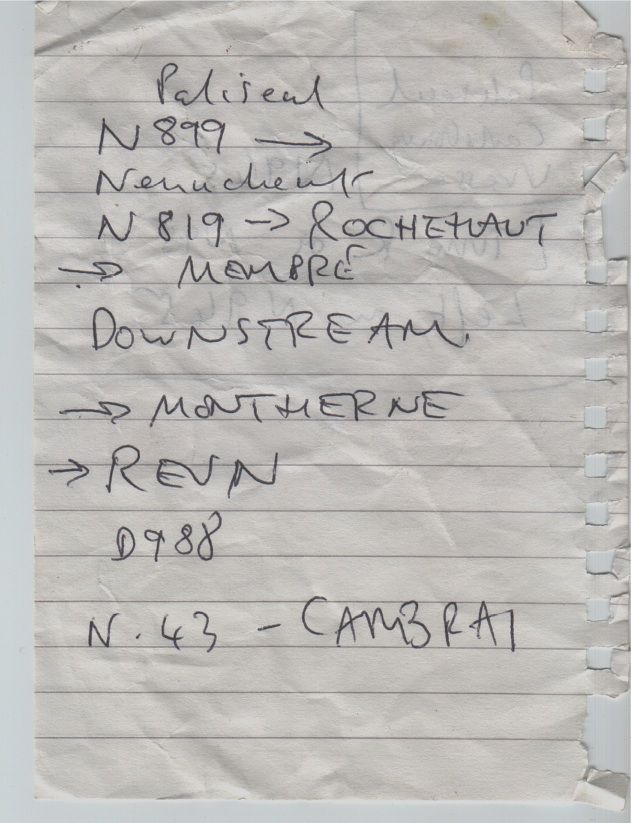 Paliseul
N 899 →
N 819 → ROCHEHAUT
→ MEMBRÉ
DOWNSTREAM.
→ MONTHERNE
→ REVIN
D988
N. 43 – CAMBRAI